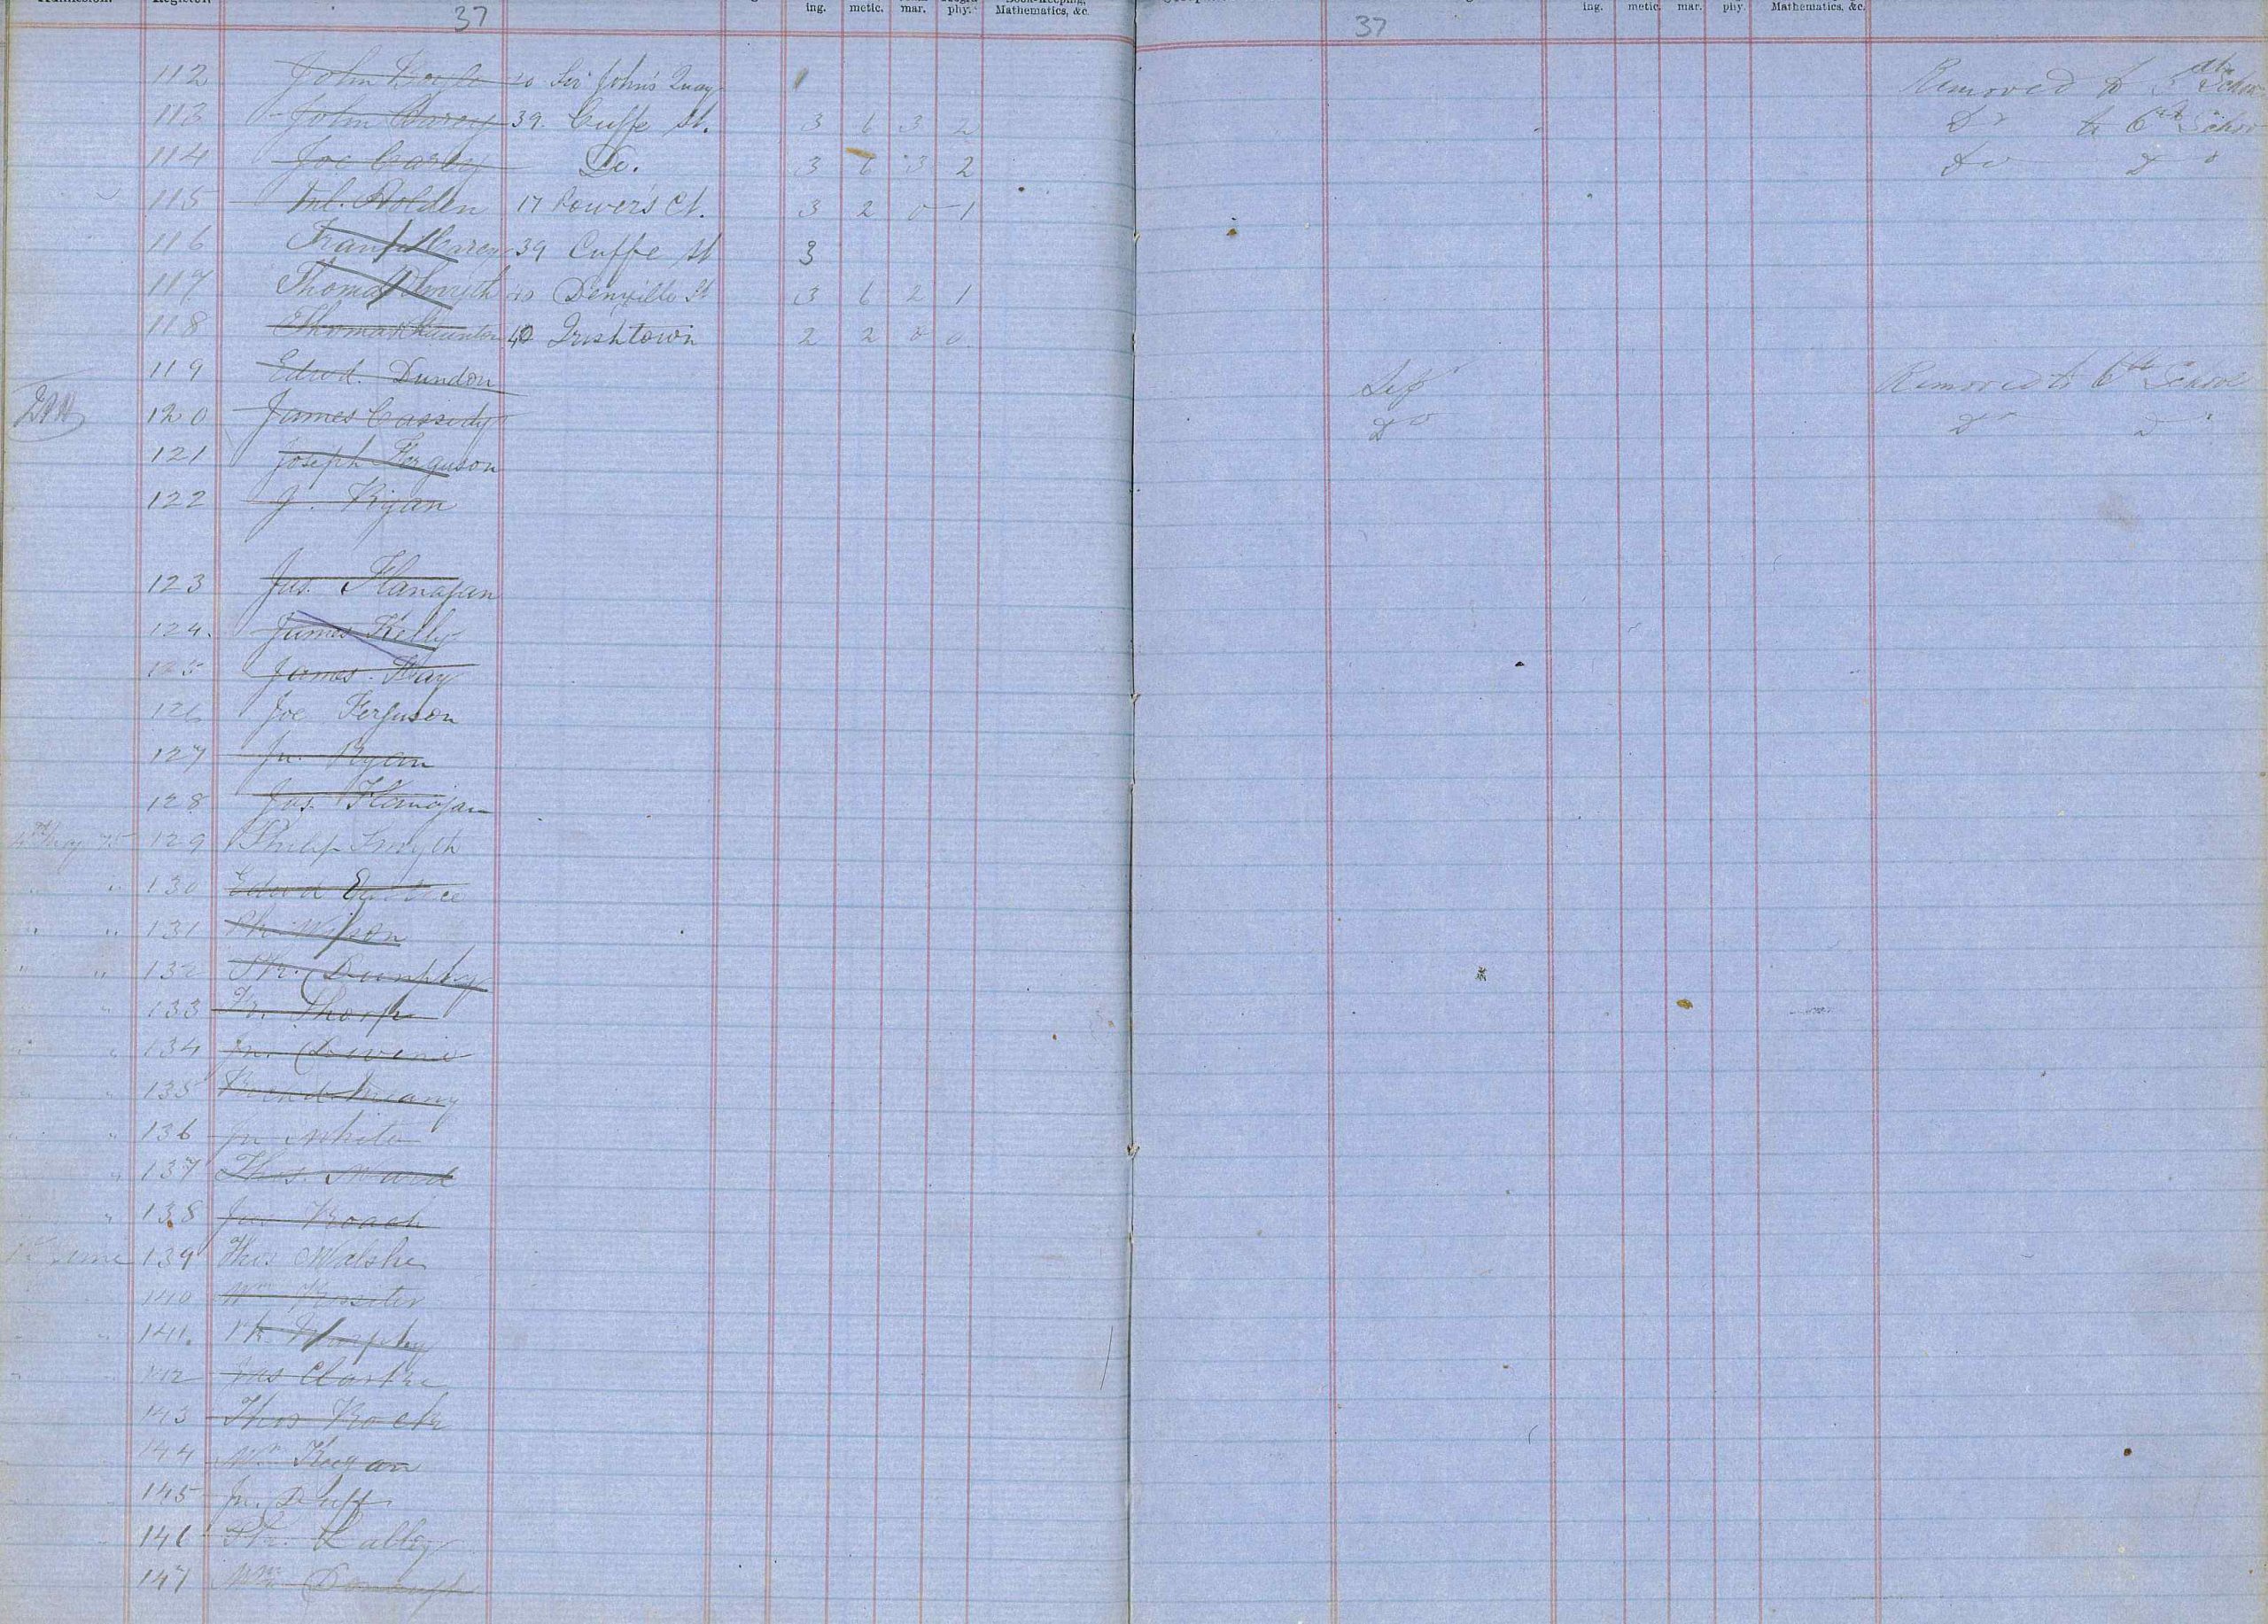 37 37
ing. metic. mar. phy. Mathematics, &c. ing. metic. mar. phy. Mathematics, &c.
112 John Sir John's Quay Removed to 5th School
113 John Carey 39. Cuffe St. 3 6 3 2 Do to 6th School
114 Joe Carey Do. 3 6 3 2 Do Do
115 Ml. Holden 17 Power's Ct. 3 2 0 1
116 Carey 39 Cuffe St 3
117 Thomas Smyth 40 Denzille St 3 6 2 1
118 Thomas 40 Irishtown 2 2 0 0
119 Edwd. Dundon Left Removed to 6th School
120 James Cassidy Do Do Do
121 Joseph Ferguson
122 J. Ryan
123 Jas. Flanagan
124. James Kelly
125 James
126 Joe Ferguson
127 Jn. Ryan
128 Jas. Flanagan
May 75 129 Philip Smyth
" " 130 Edwd
" " 131 Wilson
" " 132 Dunphy
" 133 Thorpe
" 134 Jn. Devine
" 135 Meany
" 136 Jn White
" 137 Thos. Ward
" 138 Roach
June 139 Thos Walshe
140 Wm Rossiter
" 141. Pk. Murphy
142 Jas Clarke
143 Thos Roche
144 Wm Keegan
145 Jn. Duff
146 Lalley
147 Wm Donough